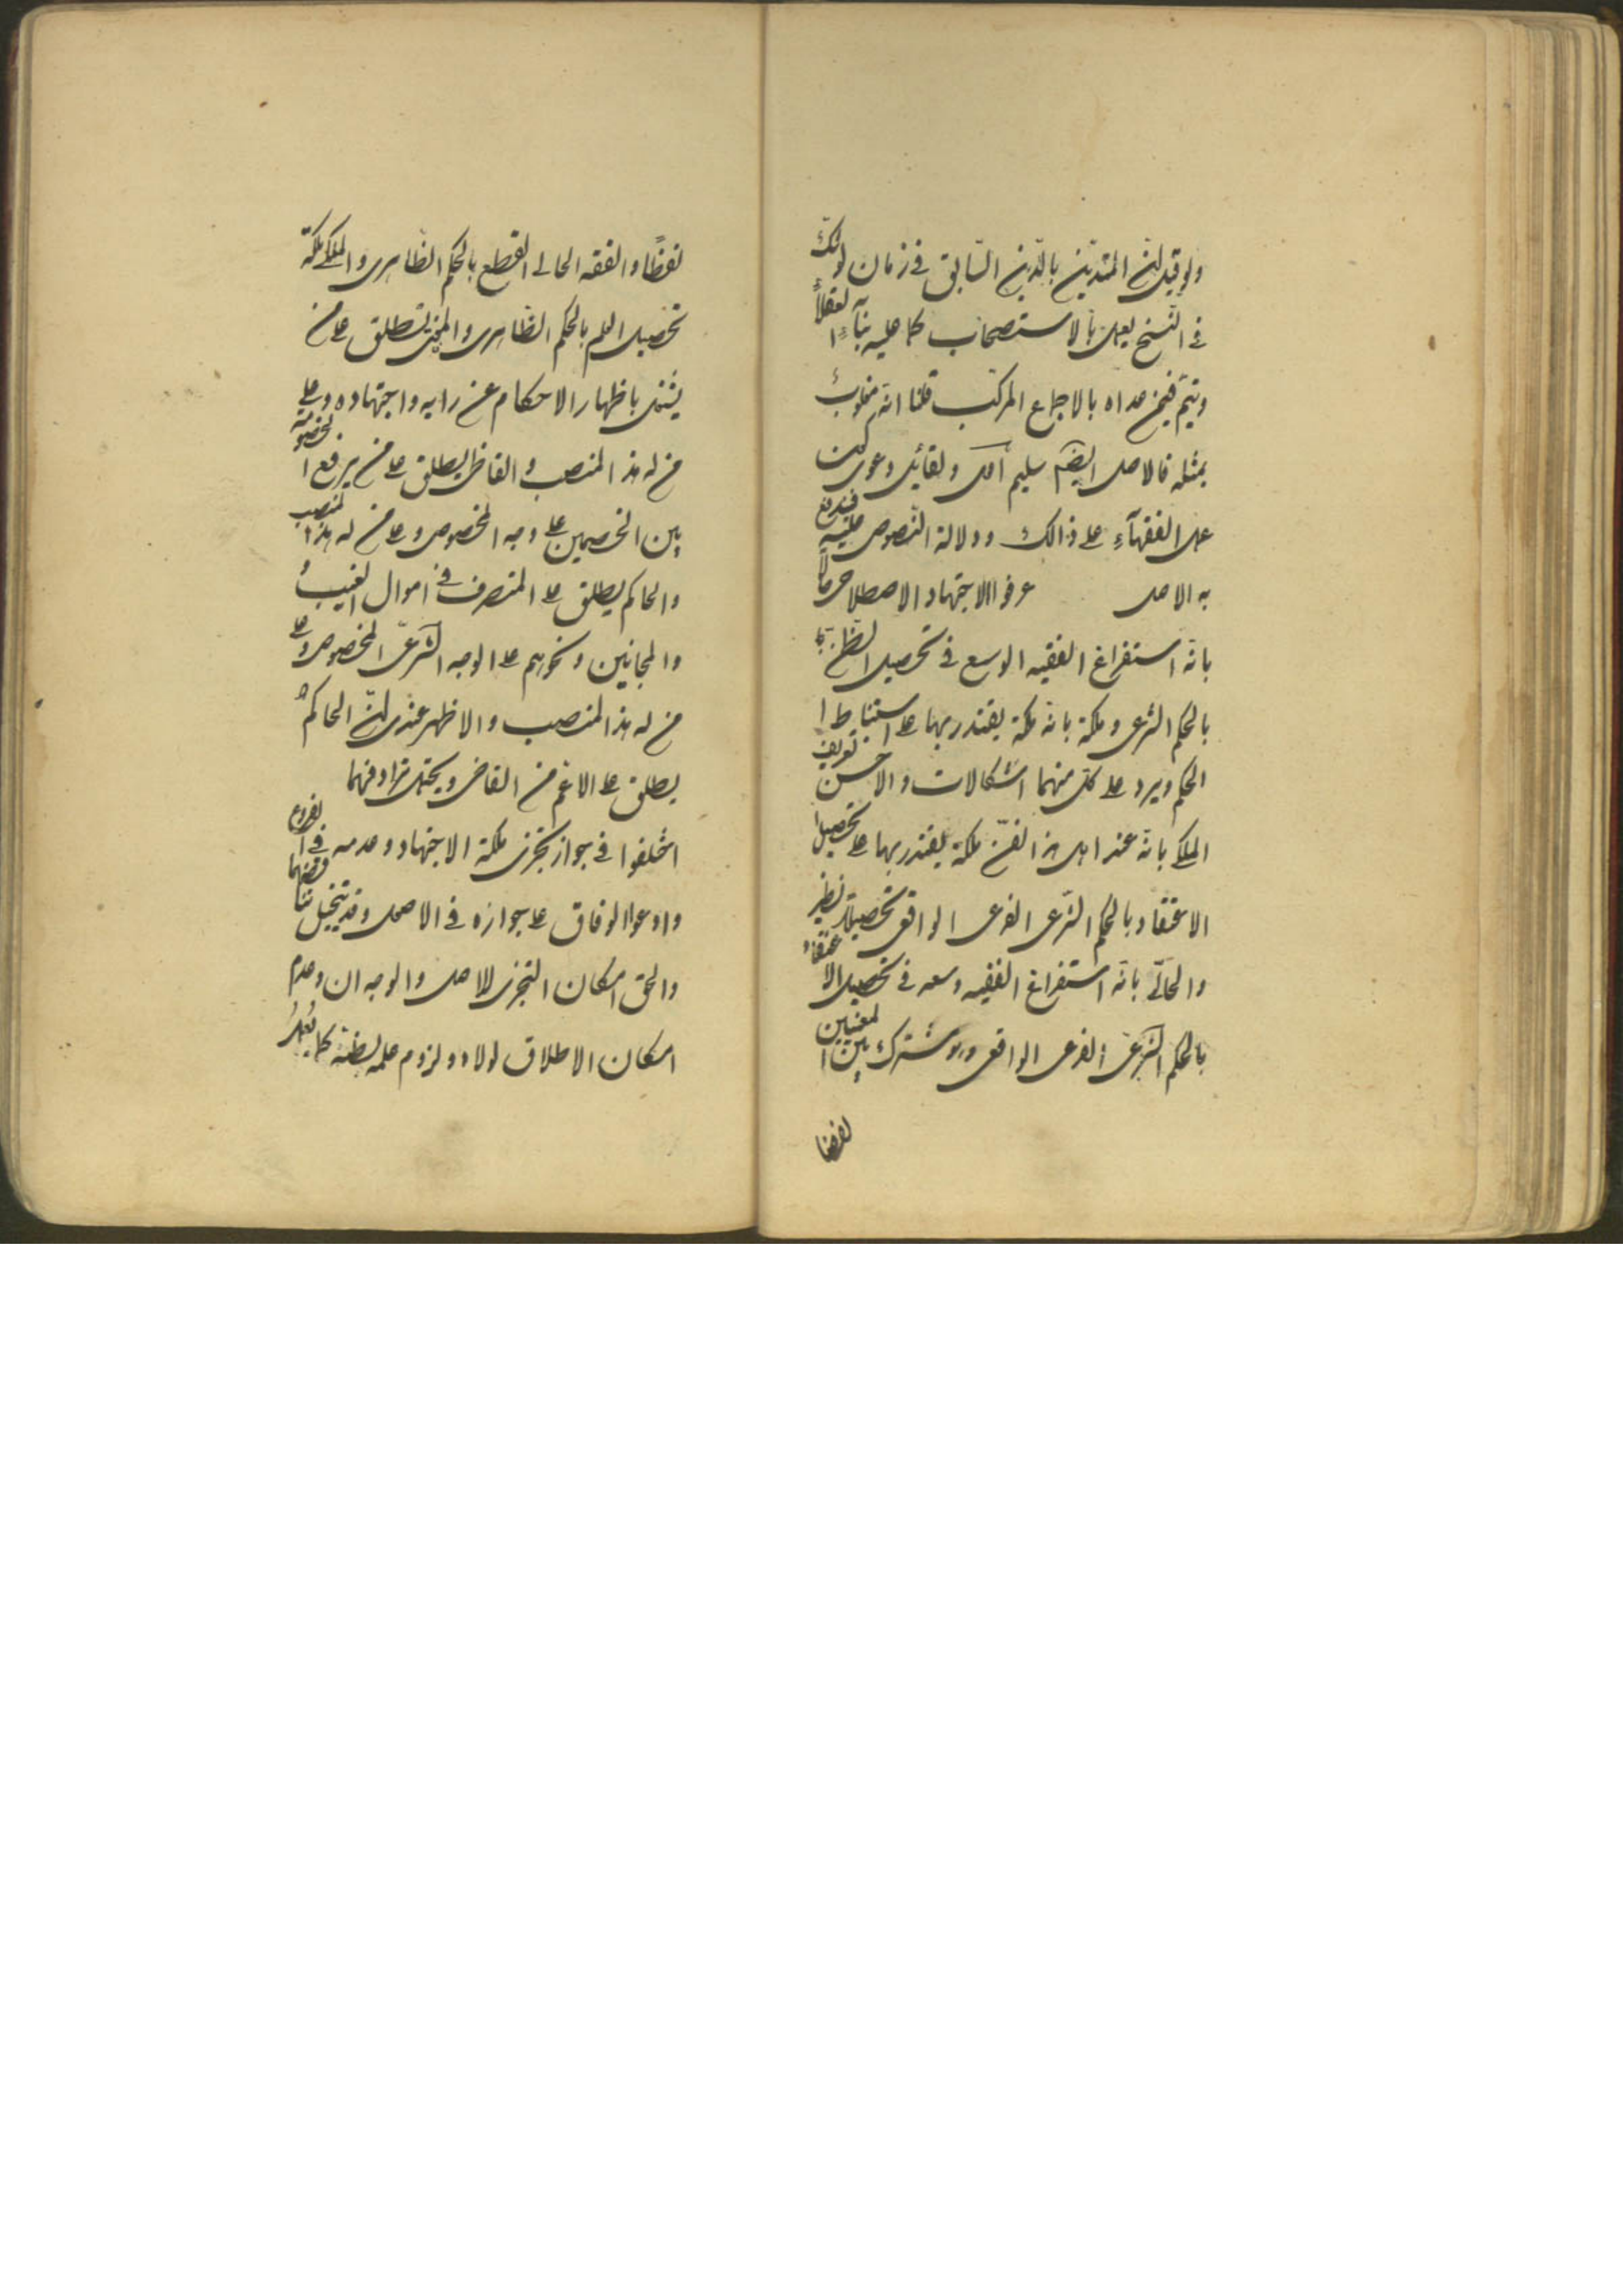 ولو قيل ان المتدين بالدين السابق في زمان الشك
في النسخ يعمل بالاستصحاب كما عليه بناء العقلاء
ويتم فيمن عداه بالاجماع المركب قلنا انه مقلوب
بمثله فالاصل ايضا سليم
عمل الفقهاء على ذالك ودلالة النصوص عليه فيندفع
به الاصل عرفوا الاجتهاد الاصطلاحي حالا
بانه استفراغ الفقيه الوسع في تحصيل الظن
بالحكم الشرعي وملكة بانه ملكة يقتدر بها على استنباط
الحكم ويرد على كل منهما اشكالات والاحسن تعريف
الملكي بانه عند اهل هذا الفن ملكة يقتدر بها على تحصيل
الاعتقاد بالحكم الشرعي الفرعي الواقعي تحصيلا
والحالي بانه استفراغ الفقيه وسعه في تحصيل الاعتقاد
بالحكم الشرعي الفرعي الواقعي وهو مشترك بين المعنيين
لفظا
لفظا والفقه الحالي القطع بالحكم الظاهري والملكي ملكة
تحصيل العلم بالحكم الظاهري والمفتي يطلق على من
يشتغل باظهار الاحكام عن رايه واجتهاده وعلى
من له هذا المنصب والقاضي يطلق على من يرفع الخصومة
بين الخصمين على وجه المخصوص وعلى من له هذا المنصب
والحاكم يطلق على المتصرف في اموال الغيب
والمجانين ونحوهم على الوجه الشرعي المخصوص وعلى
من له هذا المنصب والاظهر عندي ان الحاكم
يطلق على الاعم من القاضي ويحتمل ترادفهما
اختلفوا في جواز تجزي ملكة الاجتهاد وعدمه في الفروع
وادعوا الوفاق على جوازه في الاصول وقد يتخيل
والحق امكان التجزي للاصل والوجه ان وعدم
امكان الاطلاق لولاه ولزوم علمه